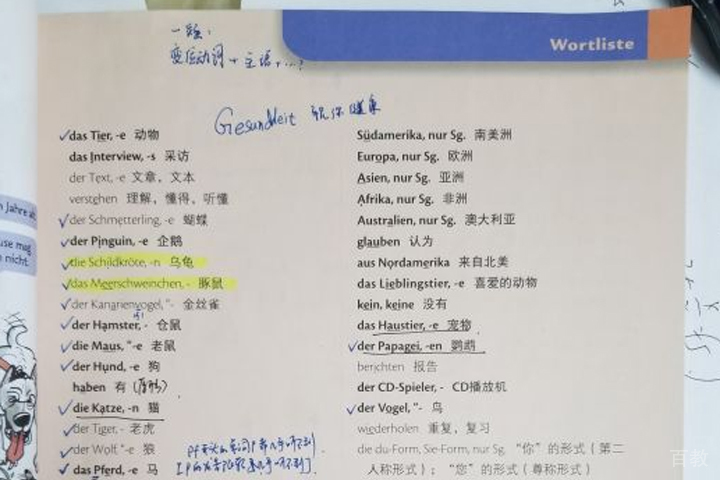 一般:
变位动词 + 主语, ...?
Wortliste
Gesundheit 祝你健康
das Tier, -e 动物
das Interview, -s 采访
der Text, -e 文章，文本
verstehen 理解，懂得，听懂
der Schmetterling, -e 蝴蝶
der Pinguin, -e 企鹅
die Schildkröte, -n 乌龟
das Meerschweinchen, - 豚鼠
der Kanarienvogel, "- 金丝雀
der Hamster, - 仓鼠
die Maus, "-e 老鼠
der Hund, -e 狗
haben 有
die Katze, -n 猫
der Tiger, - 老虎
der Wolf, "-e 狼
das Pferd, -e 马
Südamerika, nur Sg. 南美洲
Europa, nur Sg. 欧洲
Asien, nur Sg. 亚洲
Afrika, nur Sg. 非洲
Australien, nur Sg. 澳大利亚
glauben 认为
aus Nordamerika 来自北美
das Lieblingstier, -e 喜爱的动物
kein, keine 没有
das Haustier, -e 宠物
der Papagei, -en 鹦鹉
berichten 报告
der CD-Spieler, - CD播放机
der Vogel, "- 鸟
wiederholen 重复，复习
die du-Form, Sie-Form, nur Sg. “你”的形式（第二
人称形式）；“您”的形式（尊称形式）
n Jahre alt
use mag
n nicht.
百教